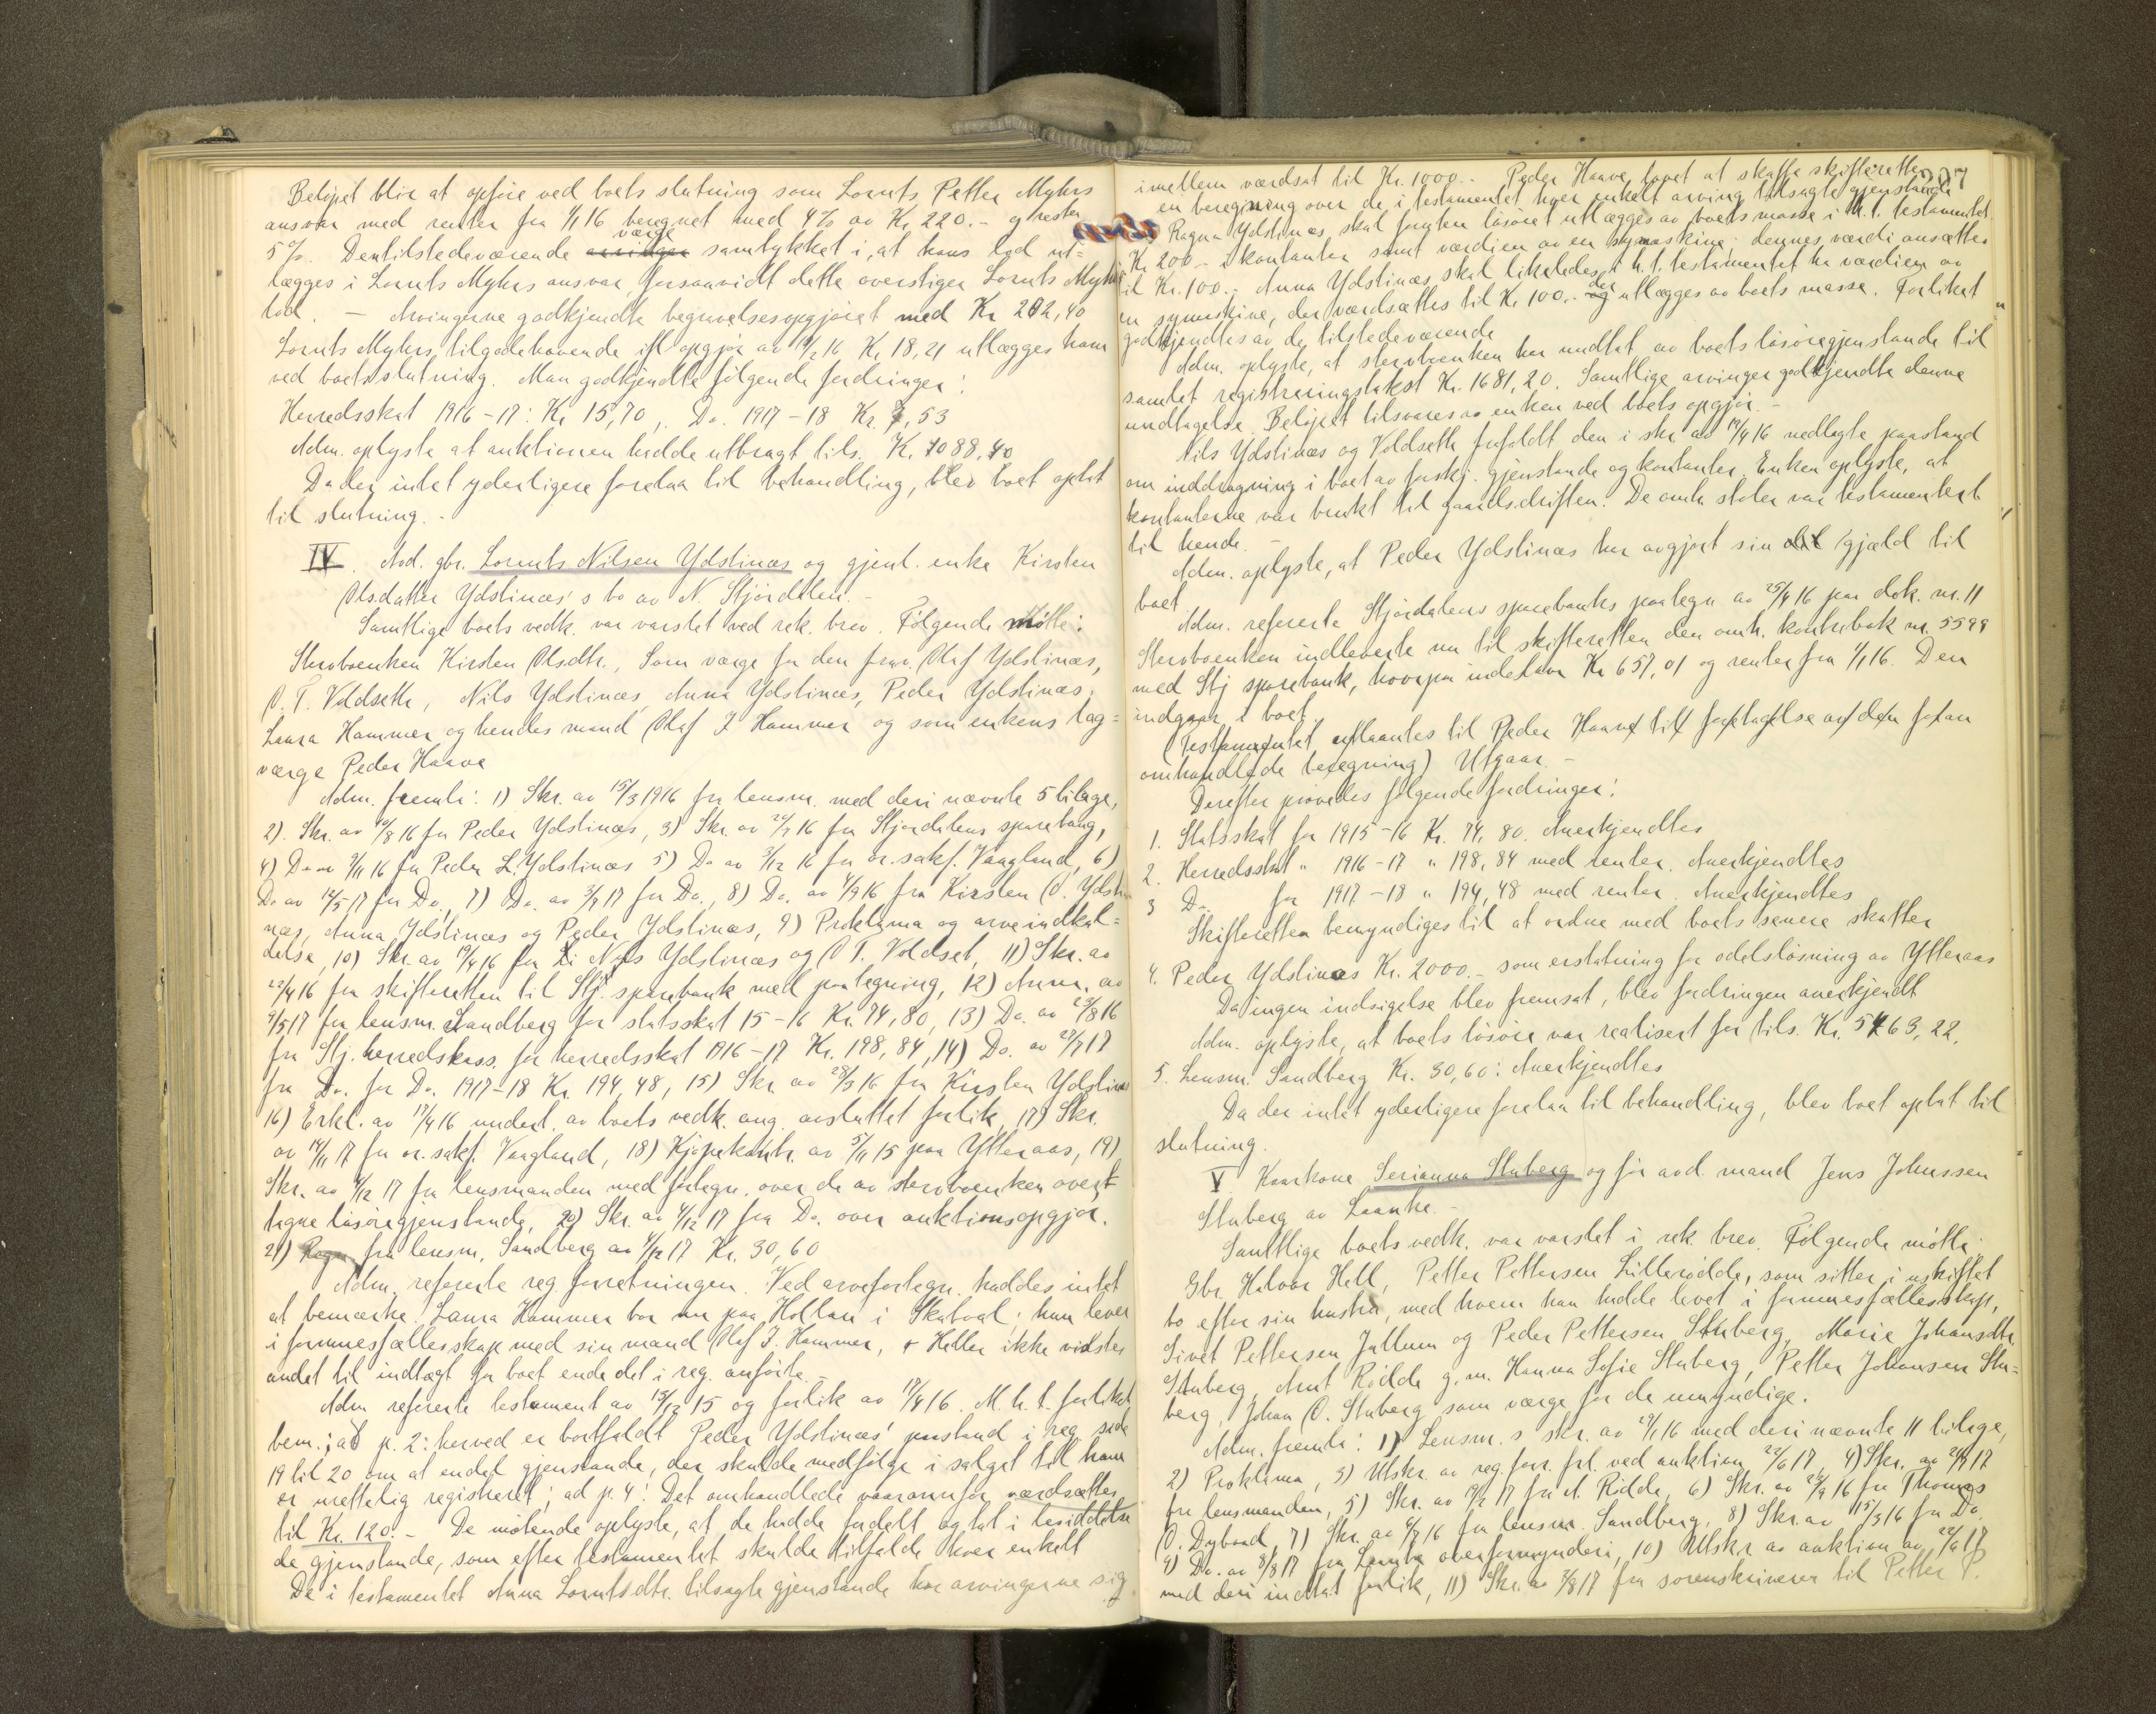 Beløpet blir at opføre ved boets slutning som Lornts Petter Myhrs
ansvar med renter fra 1/1 16 beregnet med 4% av Kr. 220.- og resten
5%. Den tilstedeværende arvinger værge samtykket i, at hans lod ut-
lægges i Lornts Myhrs ansvar, forsaavidt dette overstiger Lornts Myhrs
lod. - Arvingerne godkjendte begravelsesopgjøret med Kr 202,40
Lornts Myhrs tilgodehavende ifl opgjør av /2 16 Kr 18,21 utlægges ham
ved boets slutning. Man godkjendte følgende fordringer:
Herredsskat 1916-17: Kr 15,70, Do. 1917-18 Kr. 7,53
Adm. oplyste at auktionen hadde utbragt tils. Kr. 1088,40
Da der intet yderligere forelaa til behandling, blev boet optat
til slutning. -
IV. Avd. gbr. Lornts Nilsen Ydstinæs og gjenl. enke Kirsten
Olsdatter Ydstinæs's bo av N. Stjørdalen. -
Samtlige boets vedk. var varslet ved rek. brev. Følgende møtte:
Stervboenken Kirsten Olsdtr., Som værge for den frav. Olaf Ydstinæs,
O. T. Voldseth, Nils Ydstinæs, Anna Ydstinæs, Peder Ydstinæs,
Laura Hammer og hendes mand Olaf J Hammer og som enkens lag=
værge Peder Haave
Adm. fremla: 1) Skr. av 15/3 1916 fra lensm. med deri nævnte 5 bilage,
2). Skr. av /8 16 fra Peder Ydstinæs, 3) Skr. av 2/7 16 fra Stjørdalens sparebank,
4) Do av 9/11 16 fra Peder L. Ydstinæs 5) Do av 3/12 16 fra or. sakf. Vaagland, 6)
Do av 12/5 17 fra Do, 7) Do. av 3/7 17 fra Do., 8) Do. av 4/9 16 fra Kirsten O. Ydsti
næs, Anna Ydstinæs og Peder Ydstinæs, 9) Proklama og arveindkal=
delse, 10) Skr. av 19/4 16 fra Nils Ydstinæs og O T. Voldset, 11) Skr. av
22/4 16 fra skifteretten til Stj. sparebank med paategning, 12) Anm. av
9/5 17 fra lensm. Sandberg for statsskat 15-16 Kr. 74,80, 13) Do. av 23/8 16
fra Stj. herredskass. for herredsskat 1916-17 Kr. 198,84, 14) Do. av 27/7 17
fra Do. for Do. 1917-18 Kr 194,48, 15) Skr av 28/3 16 fra Kirsten Ydstinæs
16) Erkl. av 17/4 16 undert. av boets vedk. ang. avsluttet forlik, 17) Skr.
av 14/11 17 fra or. sakf. Vaagland, 18) Kjøpekontr. av 5/11 15 paa Ytteraas, 19)
Skr. av 4/12 17 fra lensmanden med fortegn. over de av stervboenken overt
tagne løsøregjenstande, 20) Skr. av 4/12 17 fra Do. over auktionsopgjør.
21) Regn fra lensm. Sandberg av 4/12 17 Kr. 30,60
Adm. refererte reg. forretningen. Ved arvefortegn. haddes intet
at bemærke. Laura Hammer bor nu paa Hollan i Skatval. hun lever
i formuesfællesskap med sin mand Olaf J. Hammer, Heller ikke vidstes
andet til indtægt for boet end det i reg. anførte. -
Adm refererte testament av 15/12 15 og forlik av 17/4 16. M. h. t. forliket
bem.: ad p. 2: herved er bortfaldt Peder Ydstinæs' paastand i reg. side
19 til 20 om at endel gjenstande, der skulde medfølge i salget til ham
er urettelig registreret; ad p. 4: Det omhandlede vaaronnfor værdsættes
til Kr. 120. - De møtende oplyste, at de hadde fordelt og tat i besiddelse
de gjenstande, som efter testamentet skulde tilfalde hver enkelt
De i testamentet Anna Lorntsdtr. tilsagte gjenstande har arvingerne sig
307
imellem værdsat til Kr. 1000.- Peder Haave lovet at skaffe skifteretten
en beregning over de i testamentet hver enkelt arving tilsagte gjenstande
Ragna Ydstinæs, skal foruten løsøret utlægges av boets masse i h. t. testamentet
Kr 200 - i kontanter samt værdien av en symaskine; dennes værdi ansættes
til Kr. 100. - Anna Ydstinæs skal likeledes i h. t. testamentet ha værdien av
en symaskine, der værdsættes til Kr 100.- og der utlægges av boets masse. Forliket
godkjendtes av de tilstedeværende
Adm. oplyste, at stervboenken har undtat av boets løsøregjenstande til
samlet registreringstakst Kr. 1681,20. Samtlige arvinger godkjendte denne
undtagelse. Beløpet tilsvares av enken ved boets opgjør. -
Nils Ydstinæs og Voldseth frafaldt den i skr av 19/4 16 nedlagte paastand
om inddragning i boet av forskj. gjenstande og kontanter. Enken oplyste, at
kontanterne var brukt til gaardsdriften. De omh. stoler var testamentert
til hende. -
Adm. oplyste, at Peder Ydstinæs har avgjort sin gjæld til
boet.
Adm. refererte Stjørdalens sparebanks paategn. av 25/4 16 paa dok. nr. 11
Stervboenken indleverte nu til skifteretten den omh. kontrabok nr. 5599
med Stj sparebank, hvorpaa indestaar Kr 657,01 og renter fra 1/1 16. Den
indgaar i boet.
(Testamentet utlaantes til Peder Haave til foretagelse av den foran
omhandlede beregning) Utgaar. -
Derefter prøvedes følgende fordringer:
1. Statsskat for 1915-16 Kr. 74,80. Anerkjendtes
2. Herredsskat " 1916-17 " 198,84 med renter. Anerkjendtes
3 Do. for 1917-18 " 194,48 med renter. Anerkjendtes
Skifteretten bemyndiges til at ordne med boets senere skatter
4. Peder Ydstinæs Kr. 2000. - som erstatning for odelsløsning av Ytteraas
Da ingen indsigelse blev fremsat, blev fordringen anerkjendt
Adm. oplyste, at boets løsøre var realisert for tils. Kr. 5463,22,
5. Lensm. Sandberg Kr. 30,60: Anerkjendtes
Da der intet yderligere forelaa til behandling, blev boet optat til
slutning.
V. Kaarkone Serianna Stuberg og før avd. mand Jens Johnssen
Stuberg av Laanke. -
Samtlige boets vedk. var varslet i rek. brev. Følgende møtte:
Gbr. Halvor Hell, Petter Pettersen Lillerødde, som sitter i uskiftet
bo efter sin hustru, med hvem han hadde levet i formuesfællesskap,
Sivert Pettersen Jullum og Peder Pettersen Stuberg, Marie Johansdtr
Stuberg, Arnt Rødde g. m. Hanna Sofie Stuberg, Petter Johansen Stu=
berg, Johan O. Stuberg som værge for de umyndige.
Adm. fremla: 1) Lensm. s skr. av 29/1 16 med deri nævnte 11 bilage,
2) Proklama, 3) Utskr. av reg. forr. frl. ved auktion 22/6 17, 4) Skr. av 17
fra lensmanden, 5) Skr. av 17 fra A. Rødde, 6) Skr. av 16 fra Thomas
O. Dybvad, 7) Skr. av 6/7 16 fra lensm. Sandberg, 8) Skr. av 15/3 16 fra Do.
9) Do. av 8/8 17 fra Laanke overformynderi, 10) Utskr av auktion av 22/6 17
med deri indtat forlik, 11) Skr. av 3/8 17 fra sorenskriveren til Petter P.